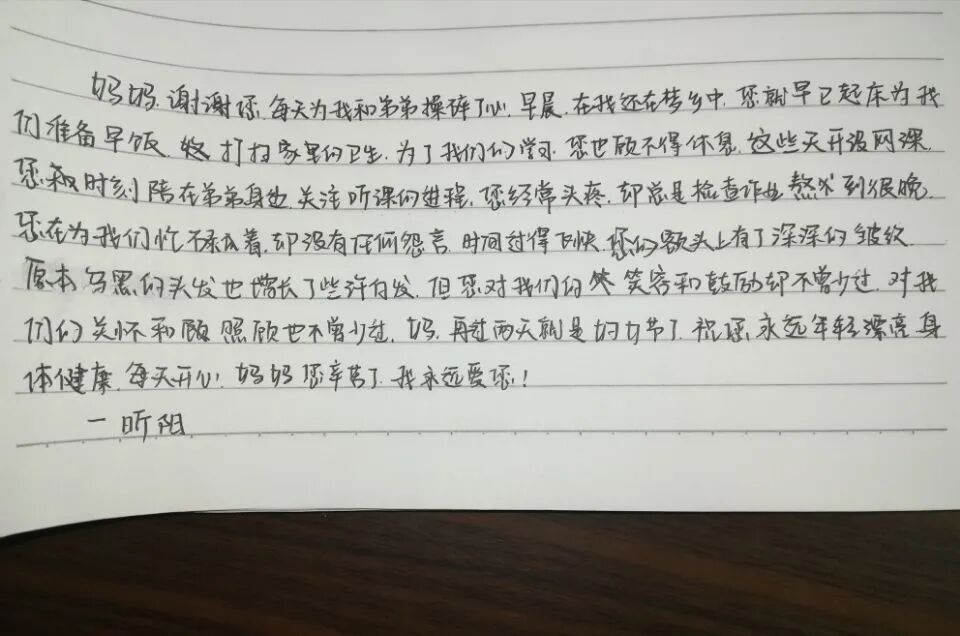 妈妈,谢谢您,每天为我和弟弟操碎了心,早晨,在我还在梦乡中,您就早已起床为我
们准备早饭,打扫家里的卫生,为了我们的学习,您也顾不得休息,这些天开设网课,
您时刻陪在弟弟身边,关注听课的进程,您经常头疼,却总是检查作业熬到很晚,
您在为我们忙禄着,却没有任何怨言,时间过得飞快,您的额头上有了深深的皱纹,
原本乌黑的头发也增长了些许白发,但您对我们的笑容和鼓励却不曾少过,对我
们的关怀和照顾也不曾少过,妈,再过两天就是妇女节了,祝您,永远年轻漂亮,身
体健康,每天开心!妈妈您辛苦了,我永远爱您!
一昕阳